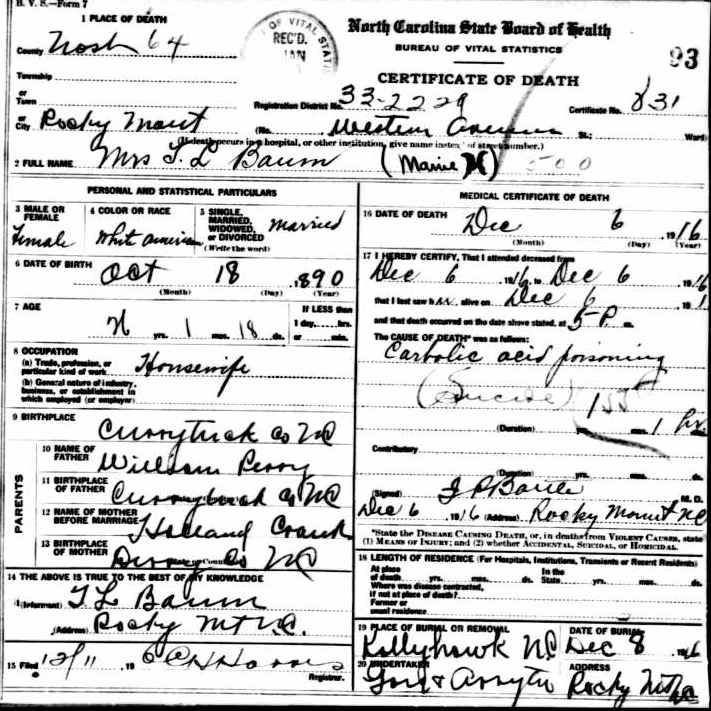 H. V. S.—Form 7
1 PLACE OF DEATH
County Nash 64
Township
or
Town
or
City Rocky Mount
OF VITAL STATIS
REC'D.
JAN
North Carolina State Board of Health
BUREAU OF VITAL STATISTICS
CERTIFICATE OF DEATH
93
Registration District No. 33-2229 Certificate No. 831
(No. Western Avenue St.; Ward
(If death occurs in a hospital, or other institution, give name instead of street number.)
2 FULL NAME Mrs T. L Baum (Mamie) 500
PERSONAL AND STATISTICAL PARTICULARS
3 MALE OR FEMALE Female
4 COLOR OR RACE White american
5 SINGLE, MARRIED, WIDOWED, OR DIVORCED (Write the word) Married
6 DATE OF BIRTH Oct 18 1890
(Month) (Day) (Year)
7 AGE yrs. 1 mos. 18 ds.
IF LESS than
1 day, hrs.
or min.
8 OCCUPATION
(a) Trade, profession, or particular kind of work Housewife
(b) General nature of industry, business, or establishment in which employed (or employer)
9 BIRTHPLACE
Currytuck Co NC
PARENTS
10 NAME OF FATHER William Perry
11 BIRTHPLACE OF FATHER Currytuck Co NC
12 NAME OF MOTHER BEFORE MARRIAGE Holland
13 BIRTHPLACE OF MOTHER Co NC
14 THE ABOVE IS TRUE TO THE BEST OF MY KNOWLEDGE
(Informant) T. L Baum
(Address) Rocky Mt N.C.
15 Filed 12/11 19 6 Registrar.
MEDICAL CERTIFICATE OF DEATH
16 DATE OF DEATH Dec 6 1916
(Month) (Day) (Year)
17 I HEREBY CERTIFY, That I attended deceased from
Dec 6 1916, to Dec 6 1916
that I last saw her alive on Dec 6 191
and that death occurred on the date above stated, at 5 P. m.
The CAUSE OF DEATH* was as follows:
Carbolic acid poisoning
(Suicide) 155
(Duration) yrs. mos. 1 hr.
Contributory
(Duration) yrs. mos. ds.
(Signed) M. D.
Dec 6 1916 (Address) Rocky Mount NC
*State the DISEASE CAUSING DEATH, or, in deaths from VIOLENT CAUSES, state
(1) MEANS OF INJURY; and (2) whether ACCIDENTAL, SUICIDAL, OR HOMICIDAL.
18 LENGTH OF RESIDENCE (For Hospitals, Institutions, Transients or Recent Residents)
At place of death yrs. mos. ds. In the State yrs. mos. ds.
Where was disease contracted, if not at place of death?
Former or usual residence
19 PLACE OF BURIAL OR REMOVAL DATE OF BURIAL
Kittyhawk NC Dec 8 1916
20 UNDERTAKER ADDRESS
Rocky Mt NC